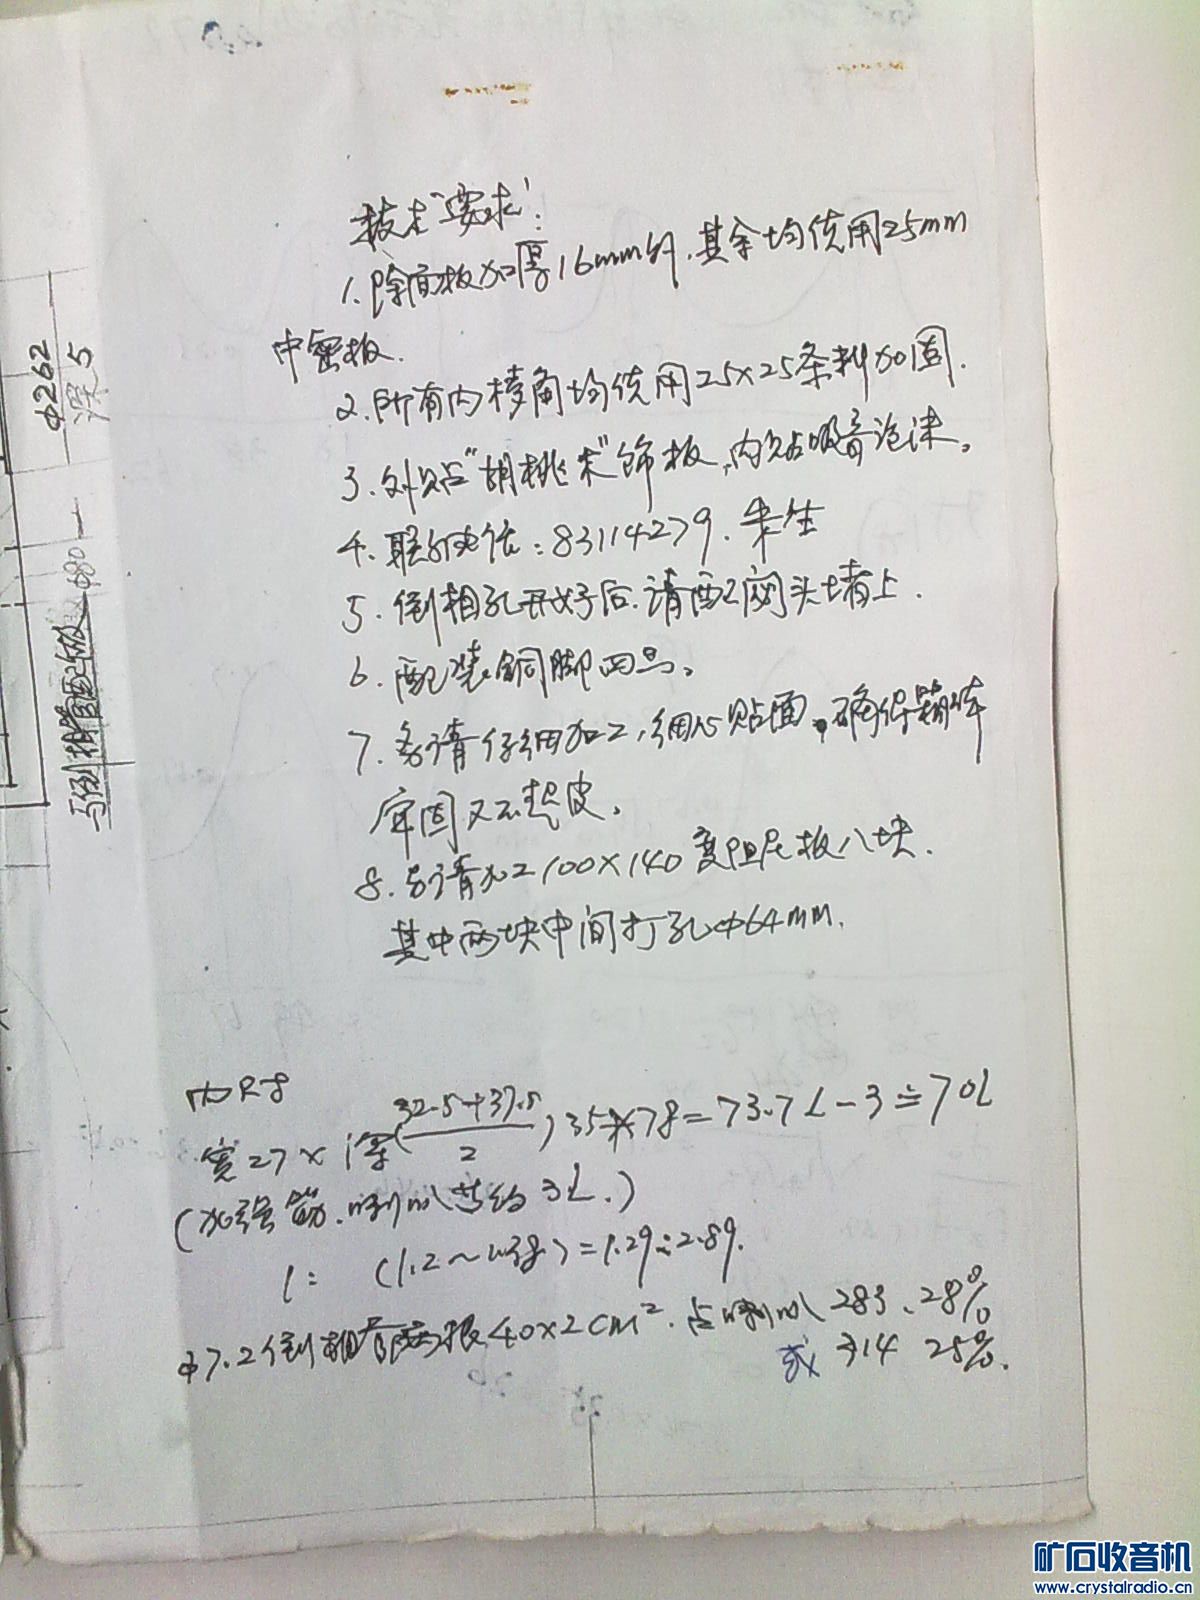 技术"要求":
1.除面板加厚16mm外.其余均使用25mm
中密板.
2.所有内棱角均使用25×25条料加固.
3.外贴"胡桃木"饰板,内贴吸音泡沫。
4.联系电话:83114279.朱生
5.倒相孔开好后.请配闷头堵上.
6.配装铜脚四只。
7.务请仔细加工,细心贴面,确保箱体
牢固又不起皮。
8.另请加工100×140变阻尼板八块.
其中两块中间打孔φ64mm.
内尺寸
宽27×深(32.5+37.5/2)35×78=73.7L-3≐70L
(加强筋.喇叭共约3L.)
1: =1.29:2.89.
φ7.2倒相管两根40×2cm².占喇叭283、28%
或314 25%.
φ262
深5
与倒相管配做
680
矿石收音机
www.crystalradio.cn